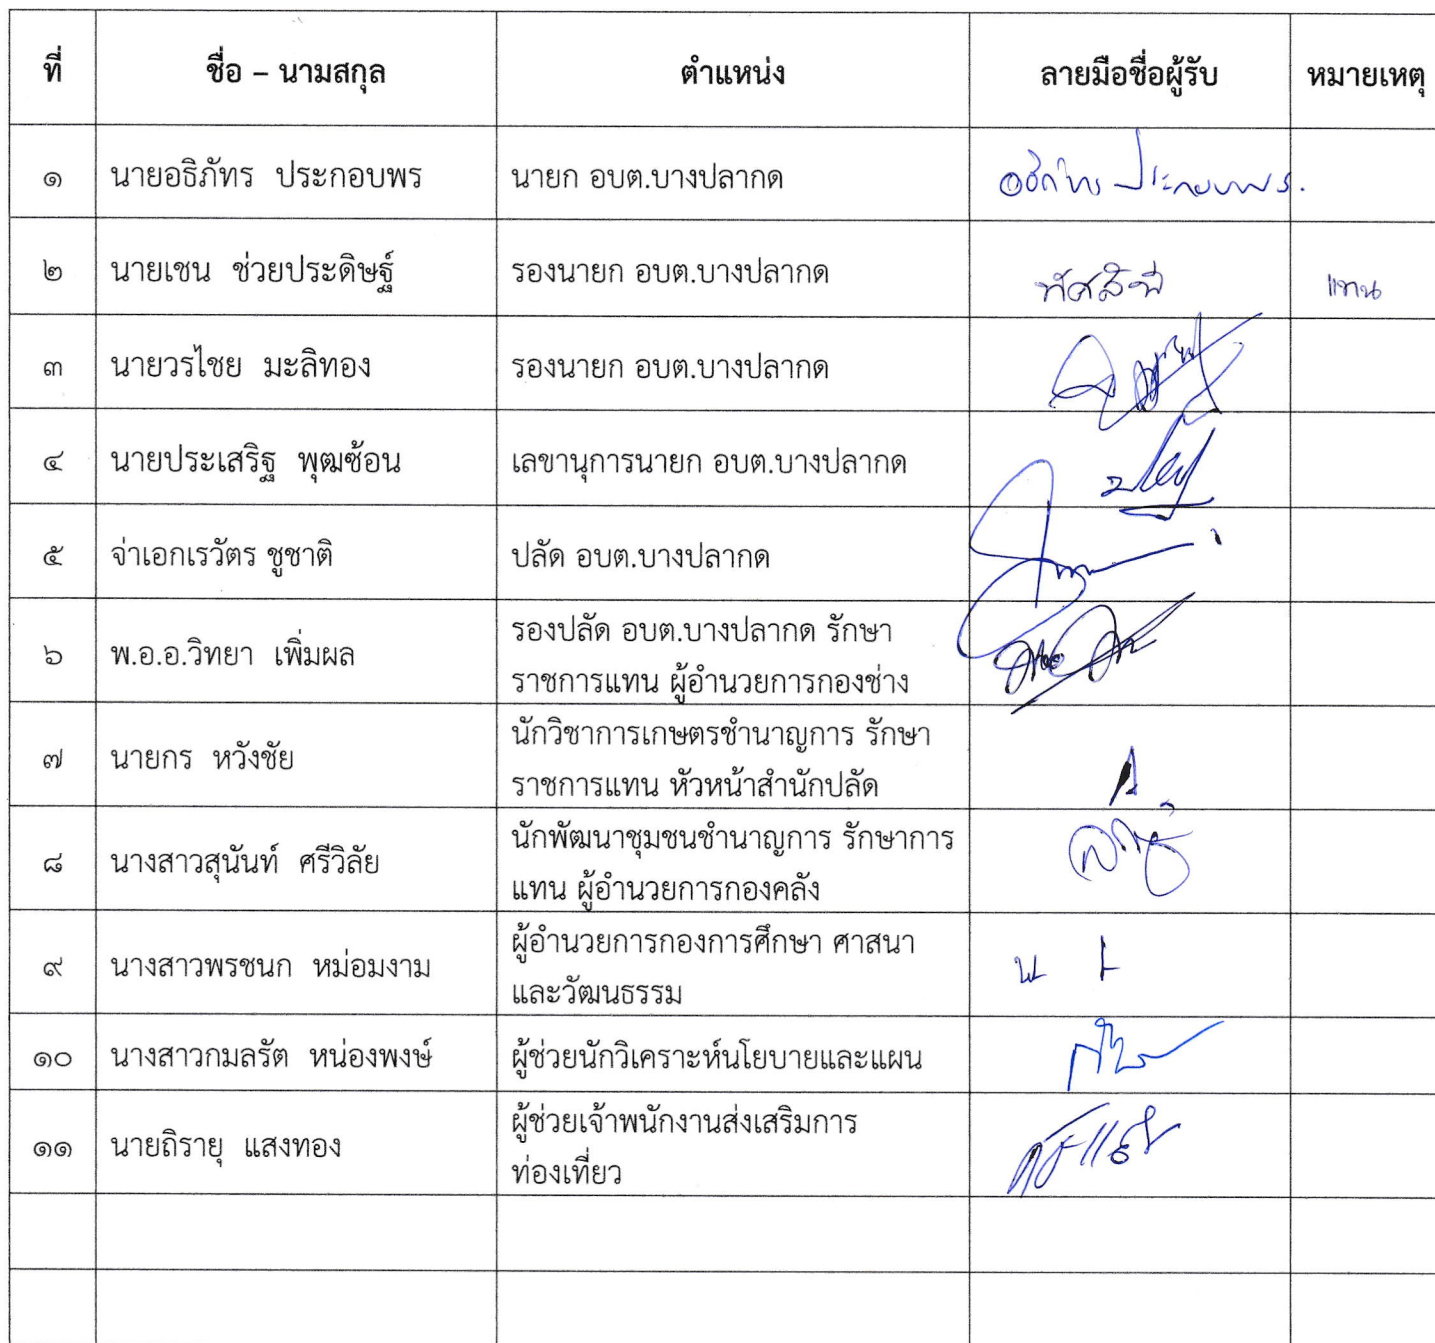 ที่ ชื่อ – นามสกุล ตำแหน่ง ลายมือชื่อผู้รับ หมายเหตุ
๑ นายอธิภัทร ประกอบพร นายก อบต.บางปลากด อธิภัทร ประกอบพร.
๒ นายเชน ช่วยประดิษฐ์ รองนายก อบต.บางปลากด แทน
๓ นายวรไชย มะลิทอง รองนายก อบต.บางปลากด
๔ นายประเสริฐ พุฒซ้อน เลขานุการนายก อบต.บางปลากด
๕ จ่าเอกเรวัตร ชูชาติ ปลัด อบต.บางปลากด
๖ พ.อ.อ.วิทยา เพิ่มผล รองปลัด อบต.บางปลากด รักษา
ราชการแทน ผู้อำนวยการกองช่าง
๗ นายกร หวังชัย นักวิชาการเกษตรชำนาญการ รักษา
ราชการแทน หัวหน้าสำนักปลัด
๘ นางสาวสุนันท์ ศรีวิลัย นักพัฒนาชุมชนชำนาญการ รักษาการ
แทน ผู้อำนวยการกองคลัง
๙ นางสาวพรชนก หม่อมงาม ผู้อำนวยการกองการศึกษา ศาสนา
และวัฒนธรรม
๑๐ นางสาวกมลรัต หน่องพงษ์ ผู้ช่วยนักวิเคราะห์นโยบายและแผน
๑๑ นายถิรายุ แสงทอง ผู้ช่วยเจ้าพนักงานส่งเสริมการ
ท่องเที่ยว